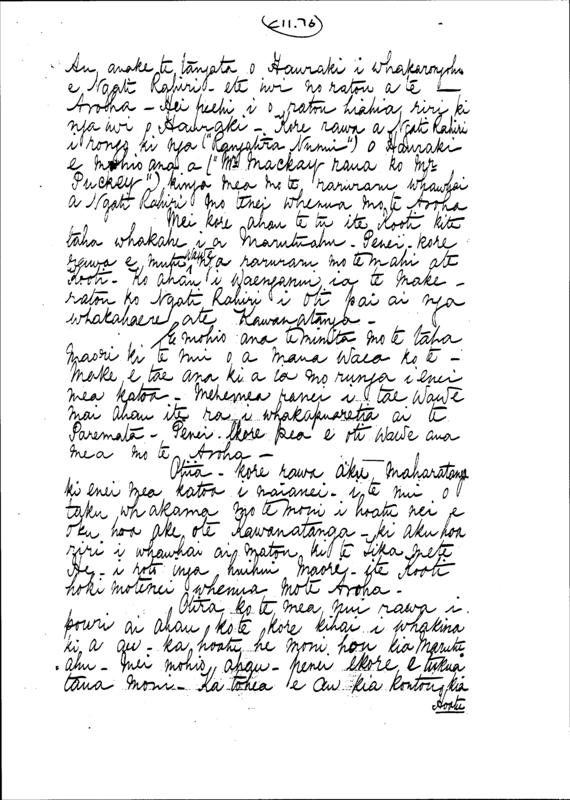 C11.76
Au anake te tangata o Hauraki i whakarongohu
e Ngati Rahiri - ete iwi no ratou a te -
Aroha - Hei peehi i o ratou hiahia riri ki
nga iwi o Hauraki - Kore rawa a Ngati Rahiri
i rongo ki nga ("Rangatira Nunui") o Hauraki
e mohio ana a ("Mr Mackay raua ko Mr
Puckey") kinga mea mo te raruraru whawhai
a Ngati Rahiri mo tenei whenua mo te Aroha
Mei kore ahau te tu ite Kooti kite
taha whakahe i a Marutuahu - Penei - kore
rawa e mutu wawe nga raruraru mo te mahi ate
Kooti - Ko ahau i waenganui ia te Make -
ratou ko Ngati Rahiri i oti pai ai nga
whakahaere ate Kawanatanga -
E mohio ana te minita mo te taha
maori ki te nui o a maua waea ko te -
Make e tae ana ki a ia mo runga i enei
mea katoa - Mehemea ranei i tae wawe
mai ahau ite ra i whakapuaretia ai te
Paremata - Penei - Ekore pea e oti wawe ana
mea mo te Aroha -
Otira - kore rawa aku maharatanga
ki enei mea katoa i naianei - i te nui o
taku whakama mo te moni i hoatu nei e
oku hoa ake ote Kawanatanga - ki aku hoa
riri i whawhai ai matou ki te Tika mete
He - i roto inga huihui Maori - ite Kooti
hoki motenei whenua mo te Aroha -
Otira ko te mea nui rawa i
pouri ai ahau ko te kore kihai i whakina
ki a au - ka hoatu he moni hou kia Marutu
ahu - Mei mohio ahau - penei ekore e tukua
taua moni - Ka tohea e au kia kontou kia
hoatu